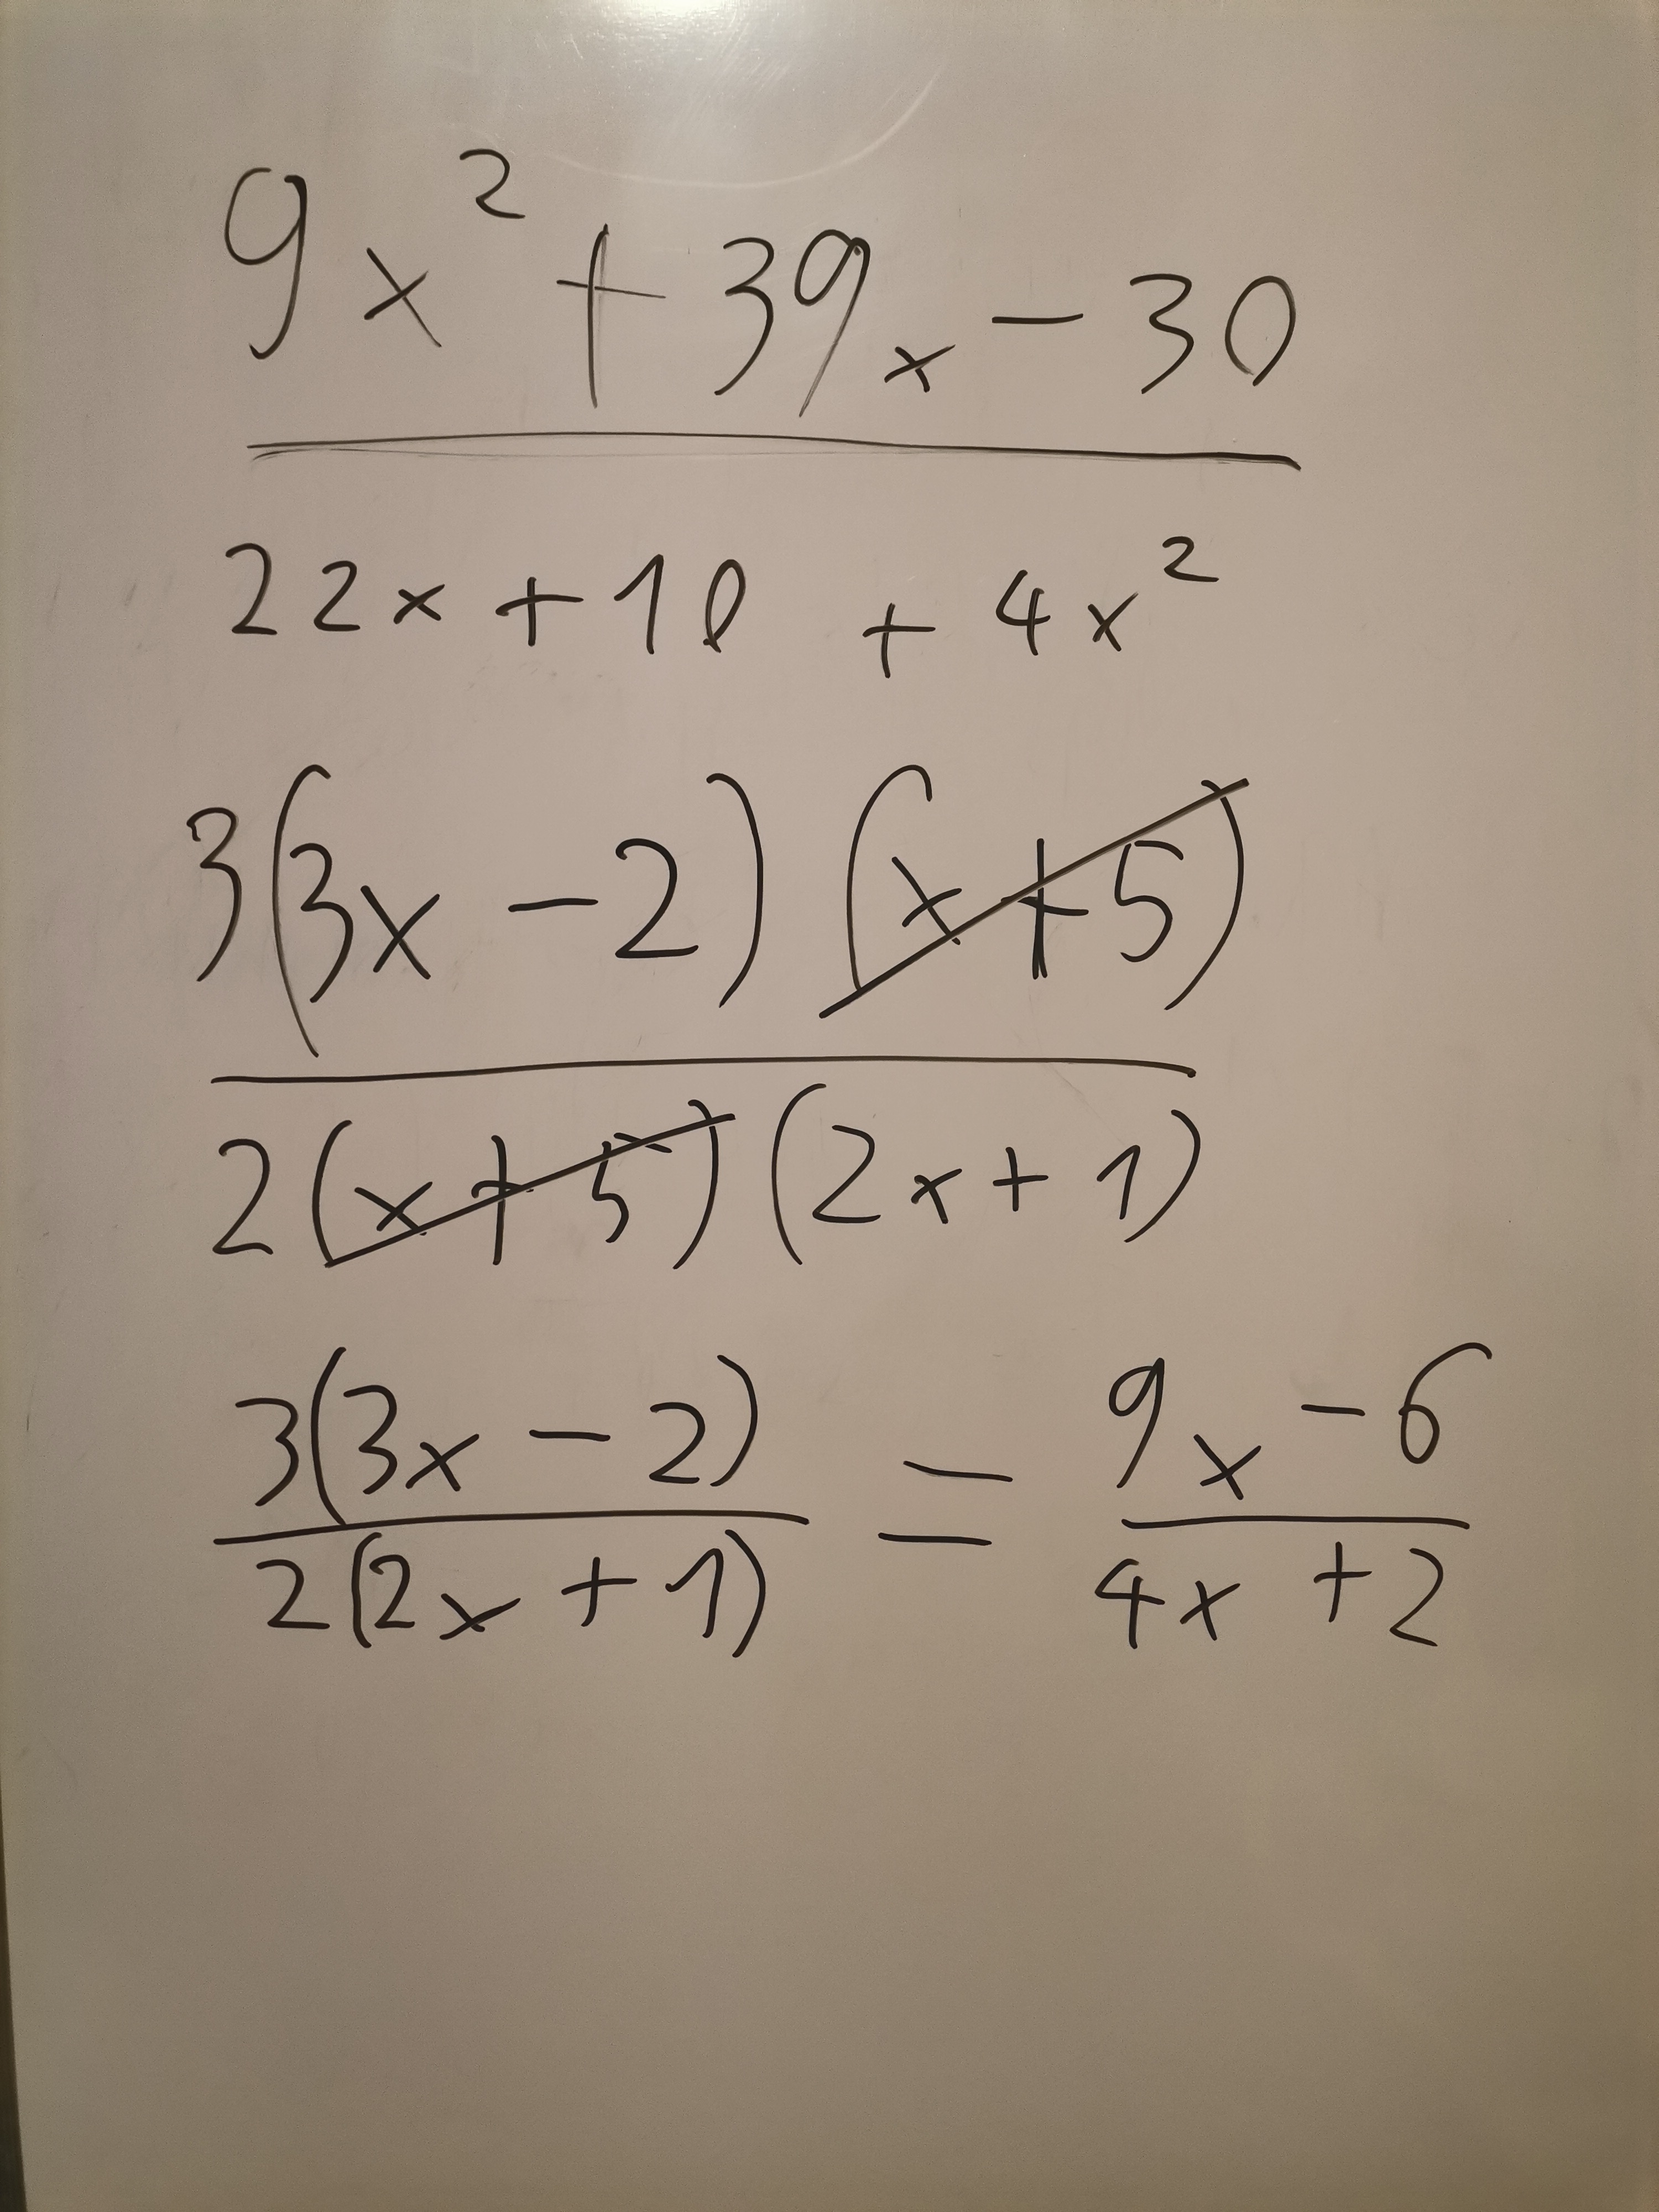 9x² + 39x - 30
22x + 10 + 4x²
3(3x - 2) (x + 5)
2(x + 5) (2x + 1)
3(3x - 2) = 9x - 6
2(2x + 1) 4x + 2